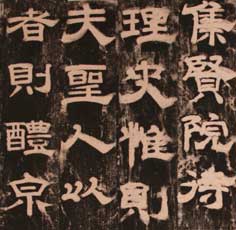 集賢院待
理史惟則
夫聖人以
者則醴泉